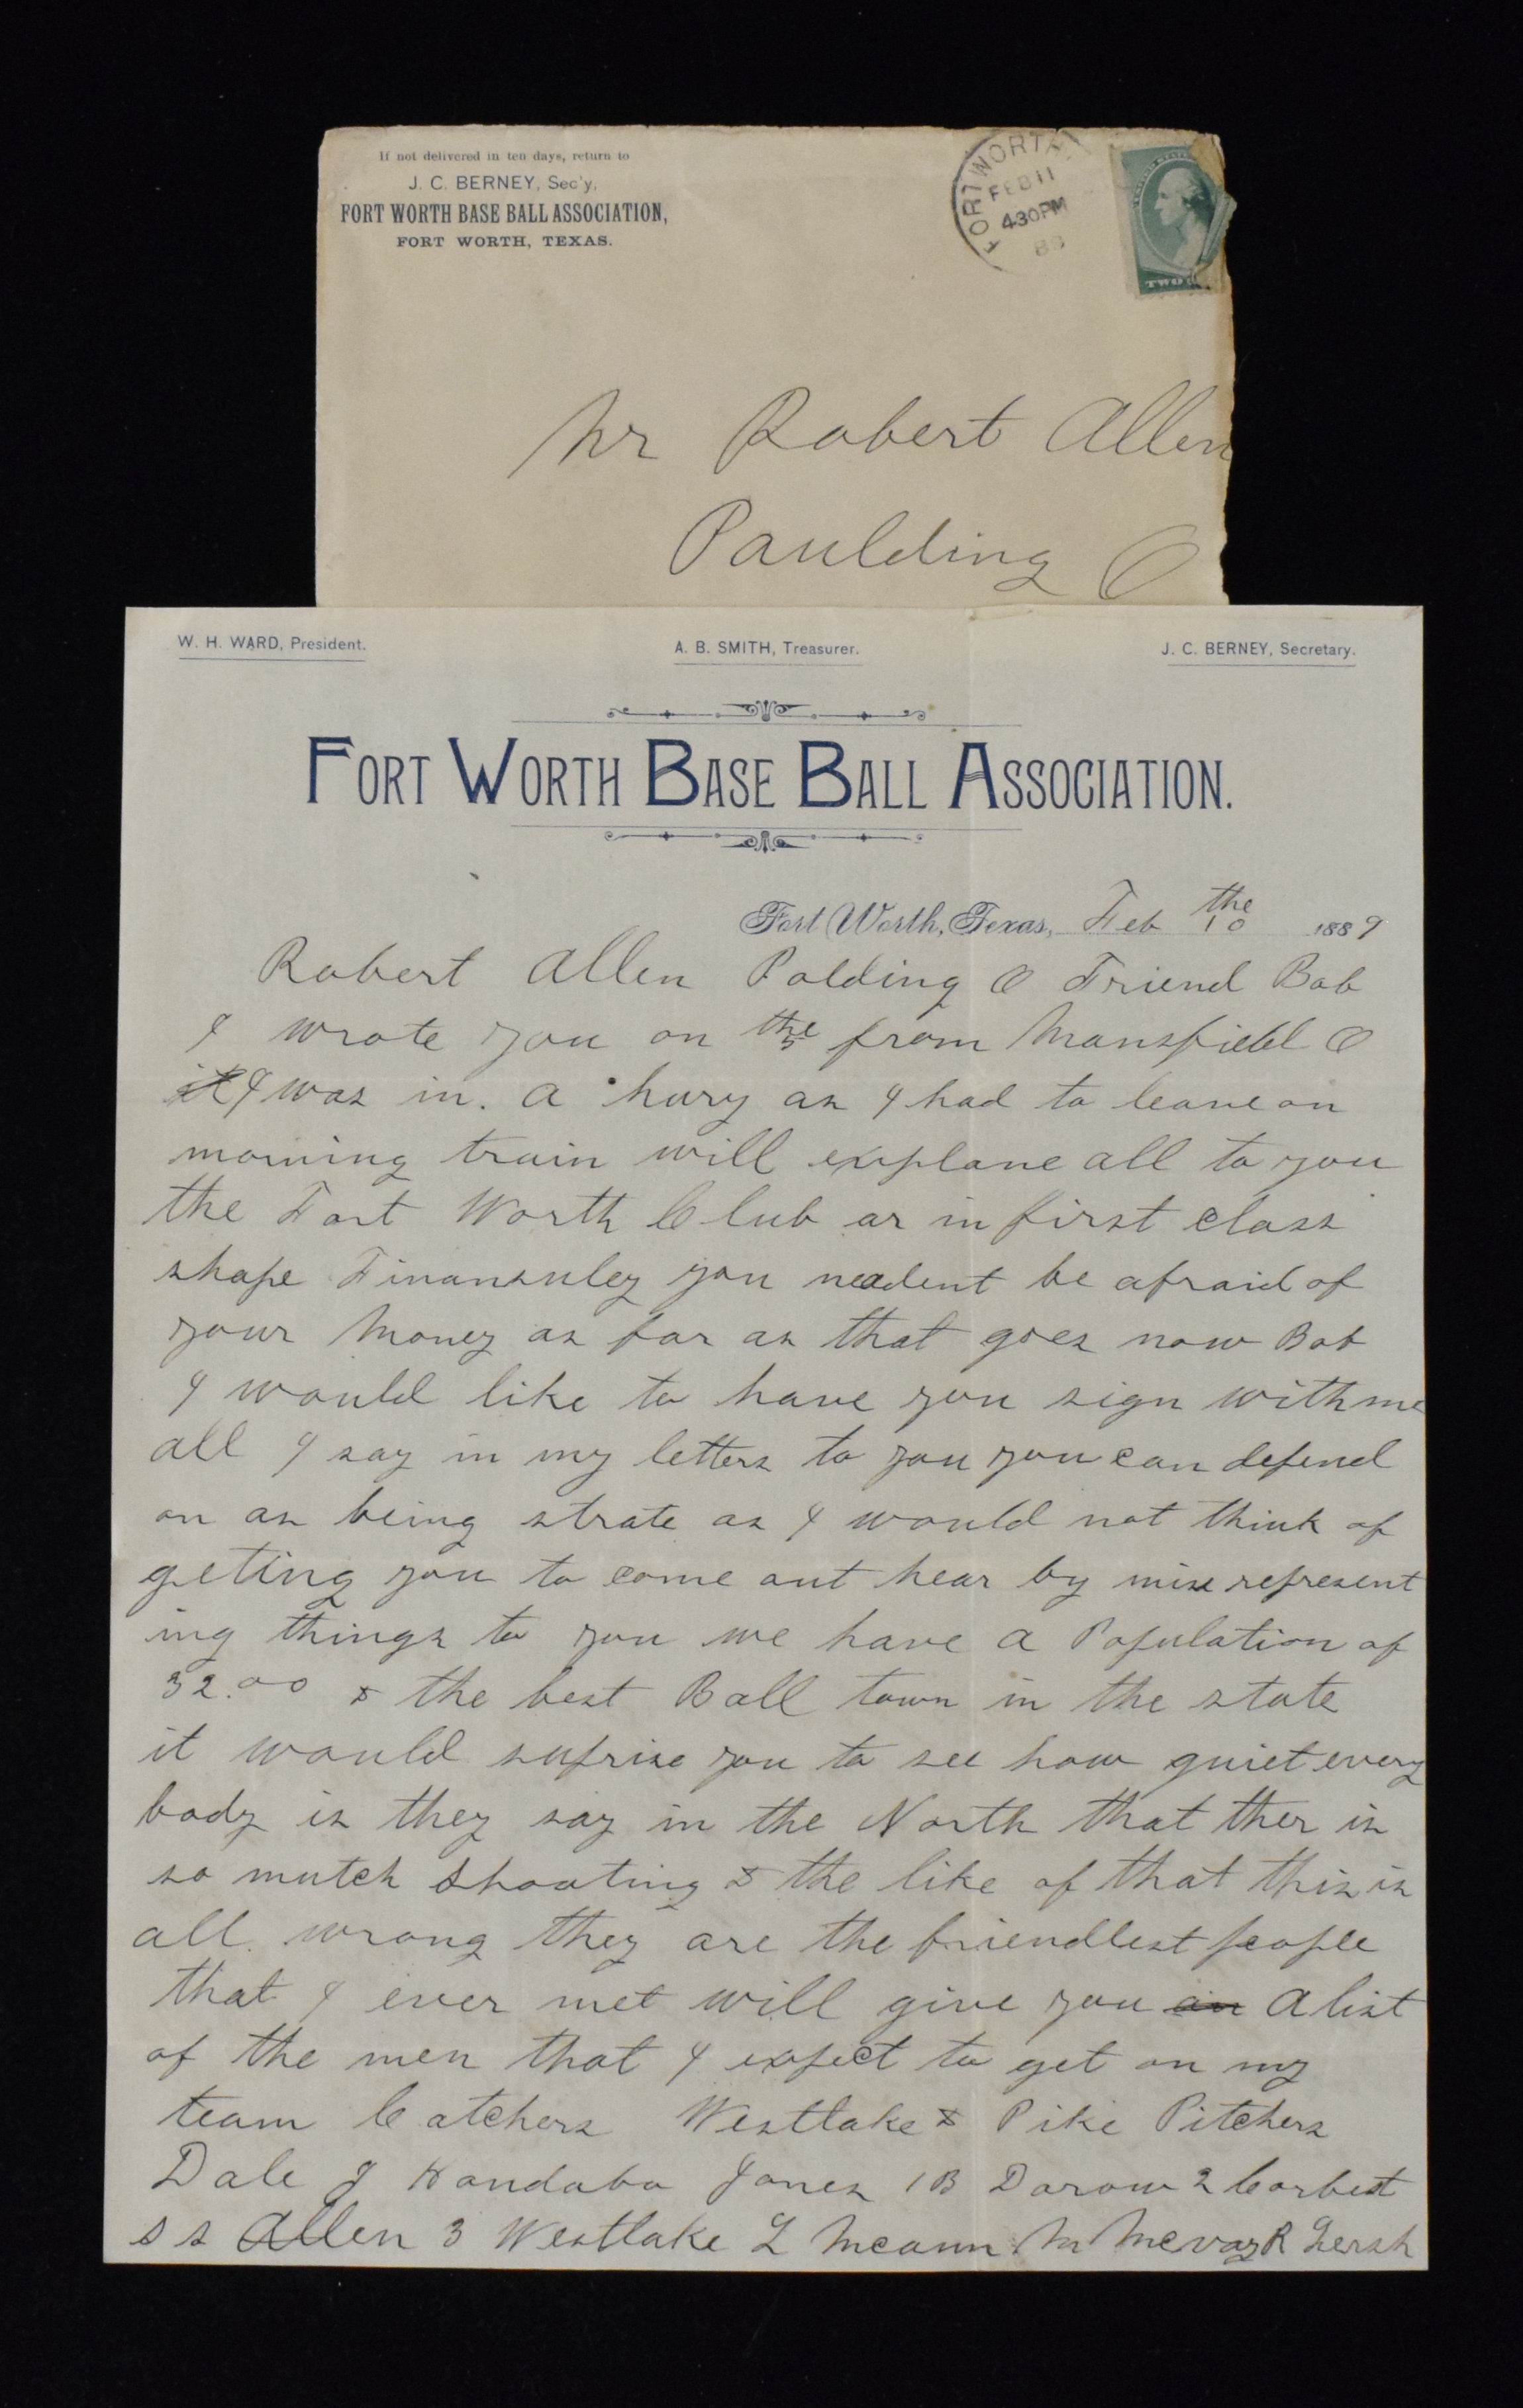 If not delivered in ten days, return to
J. C. BERNEY, Sec'y,
FORT WORTH BASE BALL ASSOCIATION,
FORT WORTH, TEXAS.
FORT WORTH
FEB 11
430PM
TWO
Mr Robert Allen
Paulding O
W. H. WARD, President.
A. B. SMITH, Treasurer.
J. C. BERNEY, Secretary.
FORT WORTH BASE BALL ASSOCIATION.
Fort Worth, Texas, Feb the 10 1889
Robert Allen Polding O Friend Bob
I wrote you on the 5 from Mansfield O
I was in. a hury as I had to leave on
morning train will explane all to you
the Fort Worth Club ar in first class
shape Finansuley you neadent be afraid of
your Money as far as that goes now Bob
I would like to have you sign with me
all I say in my letters to you you can depend
on as being strate as I would not think of
geting you to come out hear by mise represent
ing things to you we have a Population of
32.00 & the best Ball town in the state
it would suprise you to see how quiet every
body is they say in the North that ther is
so mutch shooting & the like of that this is
all. wrong they are the friendlest people
that I ever met will give you an A list
of the men that I expect to get on my
team Catchers Westlake & Pike Pitchers
Dale J Handabo Jones 1B Darow 2 Corbet
s s Allen 3 Westlake L Mcann M Mcvay R